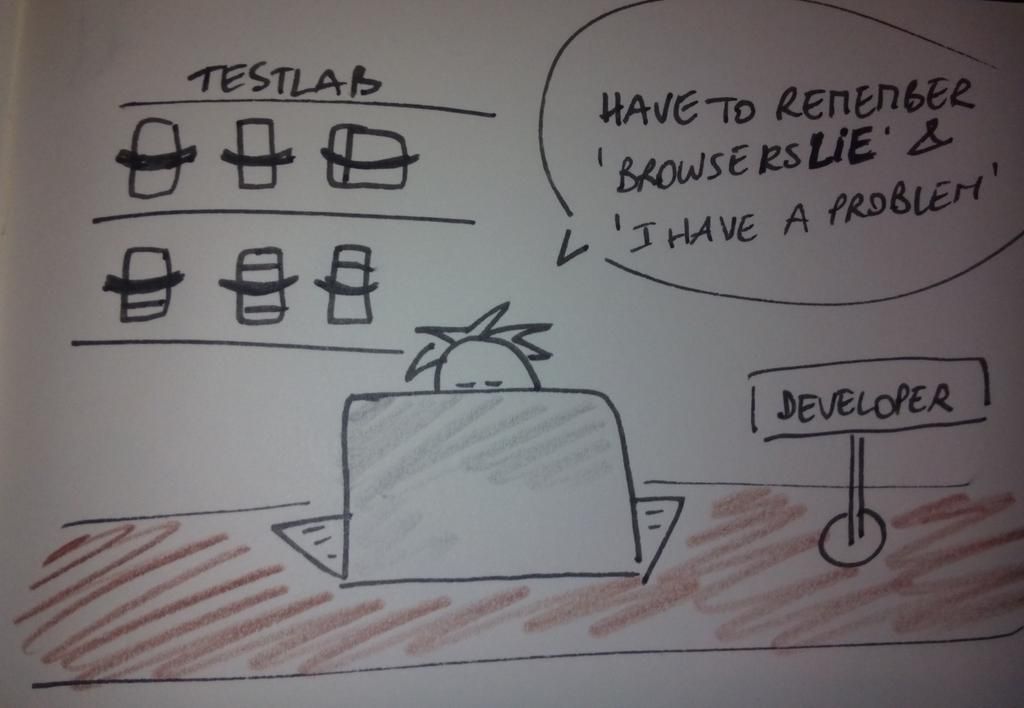 TESTLAB
HAVE TO REMEMBER
'BROWSERS LIE' &
'I HAVE A PROBLEM'
DEVELOPER